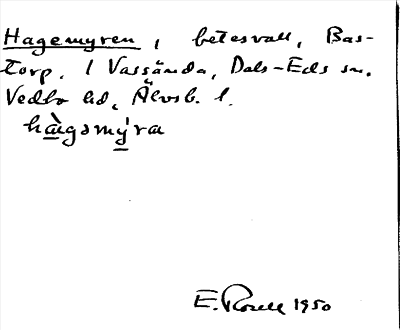 Hagemyren, betesvall, Bas-
torp. / Vassända, Dals-Eds sn.
Vedbo hd, Älvsb. l.
hàgəmy̍ra
E. Rosell 1950